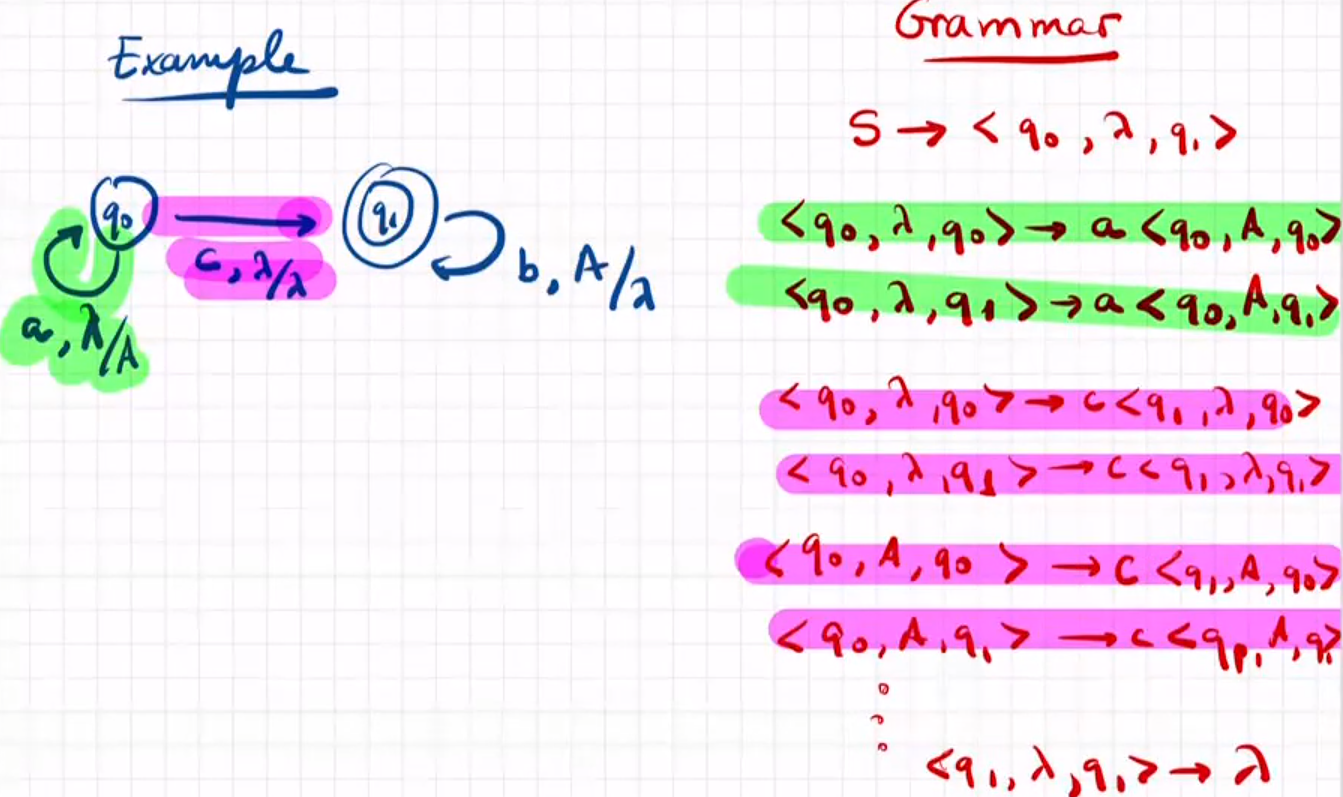 Example
q₀
q₁
c, λ/λ
b, A/λ
a, λ/A
Grammar
S → < q₀, λ, q₁ >
<q₀, λ, q₀> → a <q₀, A, q₀>
<q₀, λ, q₁> → a <q₀, A, q₁>
<q₀, λ, q₀> → c <q₁, λ, q₀>
<q₀, λ, q₁> → c <q₁, λ, q₁>
<q₀, A, q₀> → c <q₁, A, q₀>
<q₀, A, q₁> → c <q₁, A, q₁>
<q₁, λ, q₁> → λ